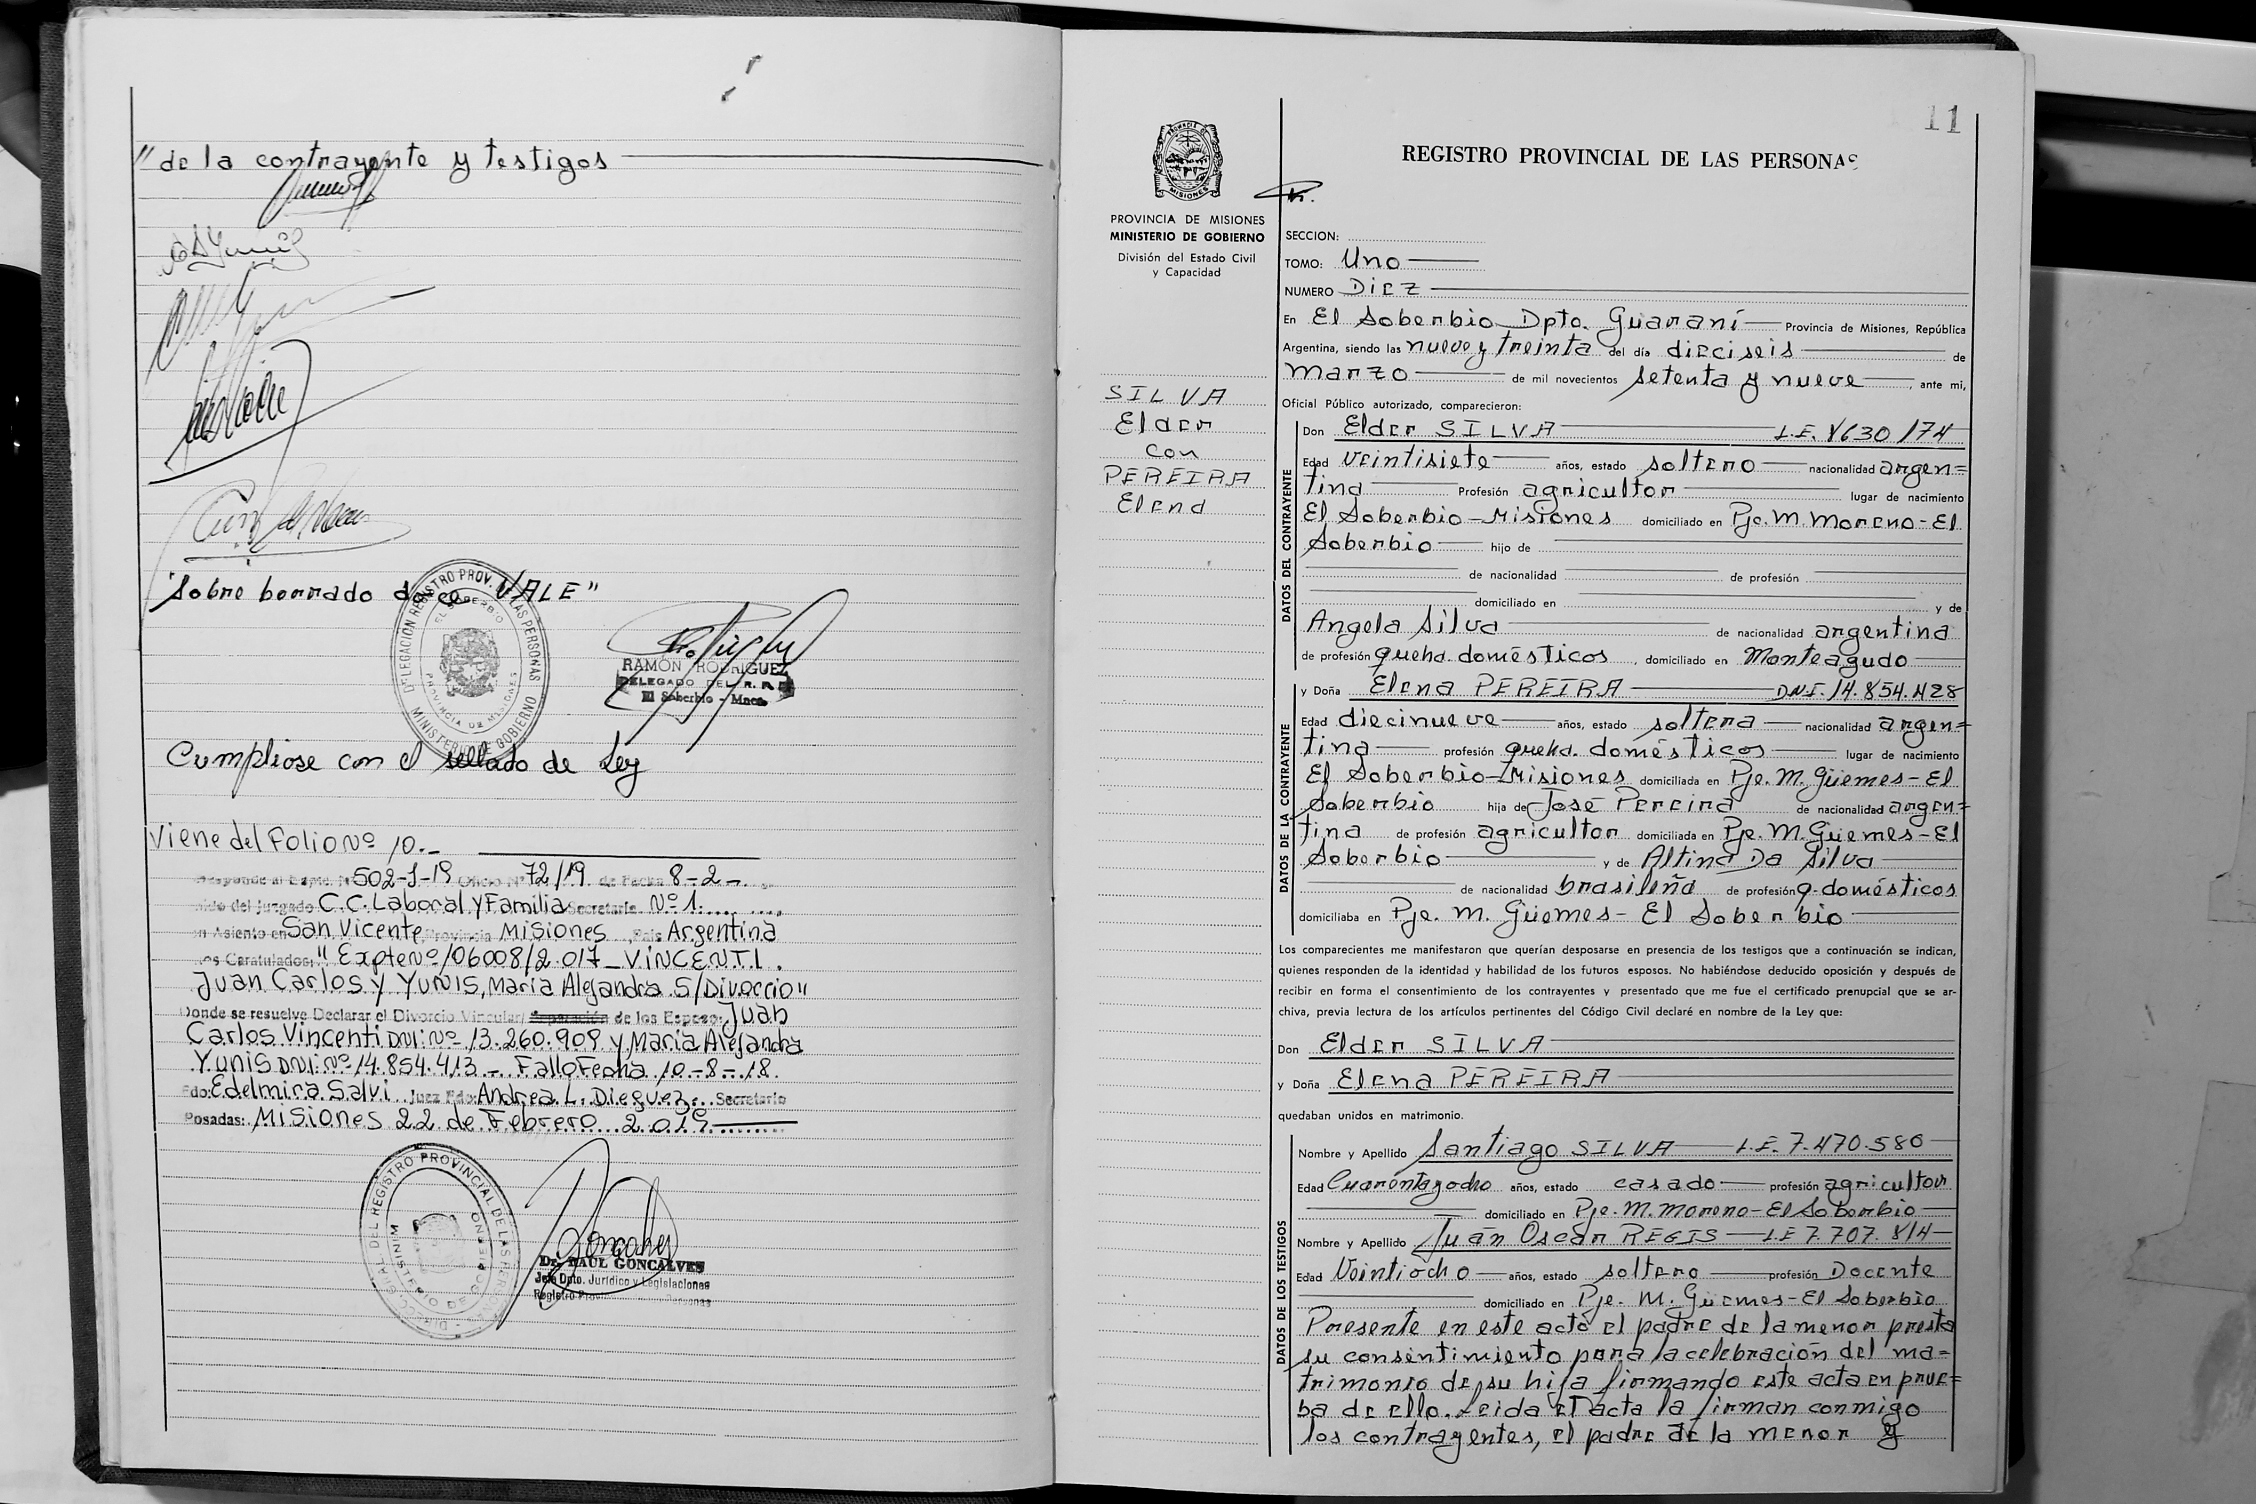 " de la contrayente y testigos
"Sobre borrado doce VALE"
DELEGACION REGISTRO PROV. DE LAS PERSONAS
EL SOBERBIO
PROVINCIA DE MISIONES
MINISTERIO DE GOBIERNO
RAMÓN RODRIGUEZ
DELEGADO DEL R. P.
El Soberbio - Mnes.
Cumpliose con el sellado de Ley
Viene del Folio Nº 10.-
Responde al Expte. Nº 502-J-19 Oficio Nº 72/19 de Fecha 8-2-
del Juzgado C.C. Laboral y Familia Secretaria Nº 1
en Asiento en San Vicente, Provincia Misiones, Pais Argentina
os Caratulados: "Expte Nº 106008/2.017 - VINCENTI
Juan Carlos y YUNIS, Maria Alejandra S/Divorcio"
Donde se resuelve Declarar el Divorcio Vincular/ Separación de los Esposo: Juan
Carlos Vincenti DNI: Nº 13.260.909 y Maria Alejandra
Yunis DNI: Nº 14.854.413 - Fallo Fecha 10-8-18.
Fdo: Edelmira Salvi Juez Fdo: Andrea L. Dieguez Secretario
Posadas: Misiones 22 de Febrero 2.019
DIREC. GRAL. DEL REGISTRO PROVINCIAL DE LAS PERSONAS
MINISTERIO DE GOBIERNO
Dr. RAUL GONCALVES
Jefe Dpto. Jurídico y Legislaciones
Registro Provincial de las Personas
11
PROVINCIA DE MISIONES
MINISTERIO DE GOBIERNO
División del Estado Civil
y Capacidad
SILVA
Elder
con
PEREIRA
Elena
REGISTRO PROVINCIAL DE LAS PERSONAS
SECCION:
TOMO: Uno
NUMERO Diez
En El Soberbio Dpto. Guaraní Provincia de Misiones, República
Argentina, siendo las nueve y treinta del día dieciseis de
marzo de mil novecientos setenta y nueve, ante mi,
Oficial Público autorizado, comparecieron:
DATOS DEL CONTRAYENTE
Don Elder SILVA L.E. 8630174
Edad veintisiete años, estado soltero nacionalidad argen=
tina Profesión agricultor lugar de nacimiento
El Soberbio-Misiones domiciliado en Pje. M. Moreno-El
Soberbio hijo de
de nacionalidad de profesión
domiciliado en y de
Angela Silva de nacionalidad argentina
de profesión queha. domésticos, domiciliado en Monteagudo
DATOS DE LA CONTRAYENTE
y Doña Elena PEREIRA D.N.I. 14.854.428
Edad diecinueve años, estado soltera nacionalidad argen=
tina profesión queha. domésticos lugar de nacimiento
El Soberbio-Misiones domiciliada en Pje. M. Güemes-El
Soberbio hija de José Pereira de nacionalidad argen=
tina de profesión agricultor domiciliada en Pje. M. Güemes-El
Soberbio y de Altina Da Silva
de nacionalidad brasileña de profesión q. domésticos
domiciliaba en Pje. M. Güemes- El Soberbio
Los comparecientes me manifestaron que querían desposarse en presencia de los testigos que a continuación se indican,
quienes responden de la identidad y habilidad de los futuros esposos. No habiéndose deducido oposición y después de
recibir en forma el consentimiento de los contrayentes y presentado que me fue el certificado prenupcial que se ar-
chiva, previa lectura de los artículos pertinentes del Código Civil declaré en nombre de la Ley que:
Don Elder SILVA
y Doña Elena PEREIRA
quedaban unidos en matrimonio.
DATOS DE LOS TESTIGOS
Nombre y Apellido Santiago SILVA L.E. 7.470.580
Edad Cuarentayocho años, estado casado profesión agricultor
domiciliado en Pje. M. Moreno-El Soberbio
Nombre y Apellido Juán Oscar REGIS L.E 7.707.814
Edad Veintiocho años, estado soltero profesión Docente
domiciliado en Pje. M. Güemes-El Soberbio
Presente en este acto el padre de la menor presta
su consentimiento para la celebración del ma=
trimonio de su hija firmando este acta en prue=
ba de ello. Leida el acta la firman conmigo
los contrayentes, el padre de la menor y